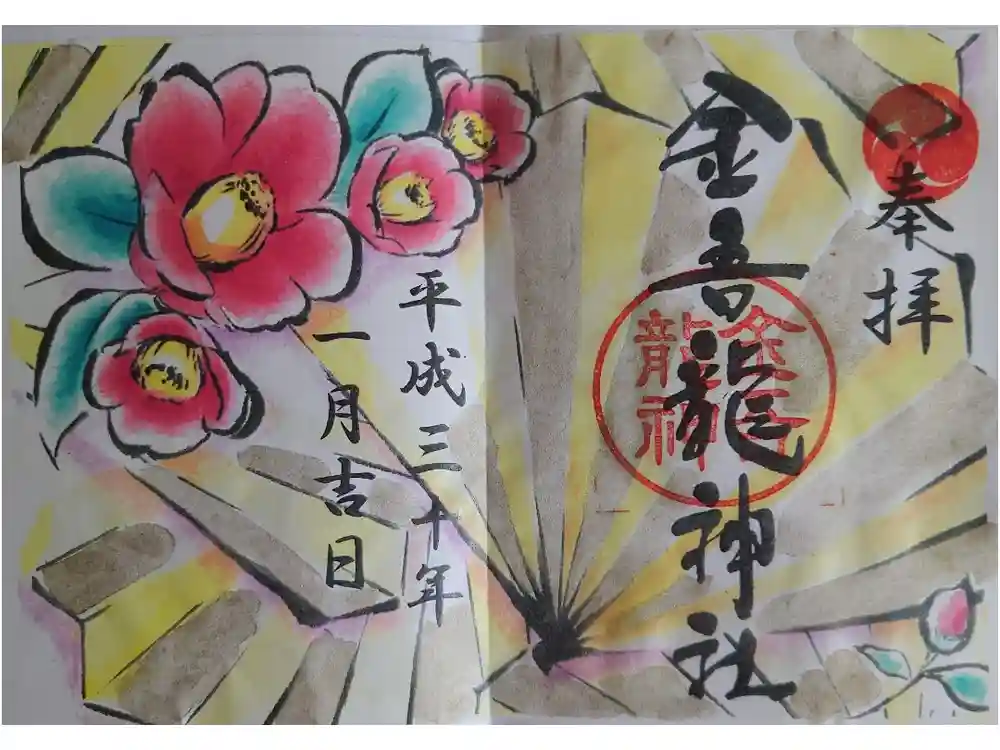 奉拝
金吾龍神社
金吾龍神
平成三十年
一月吉日